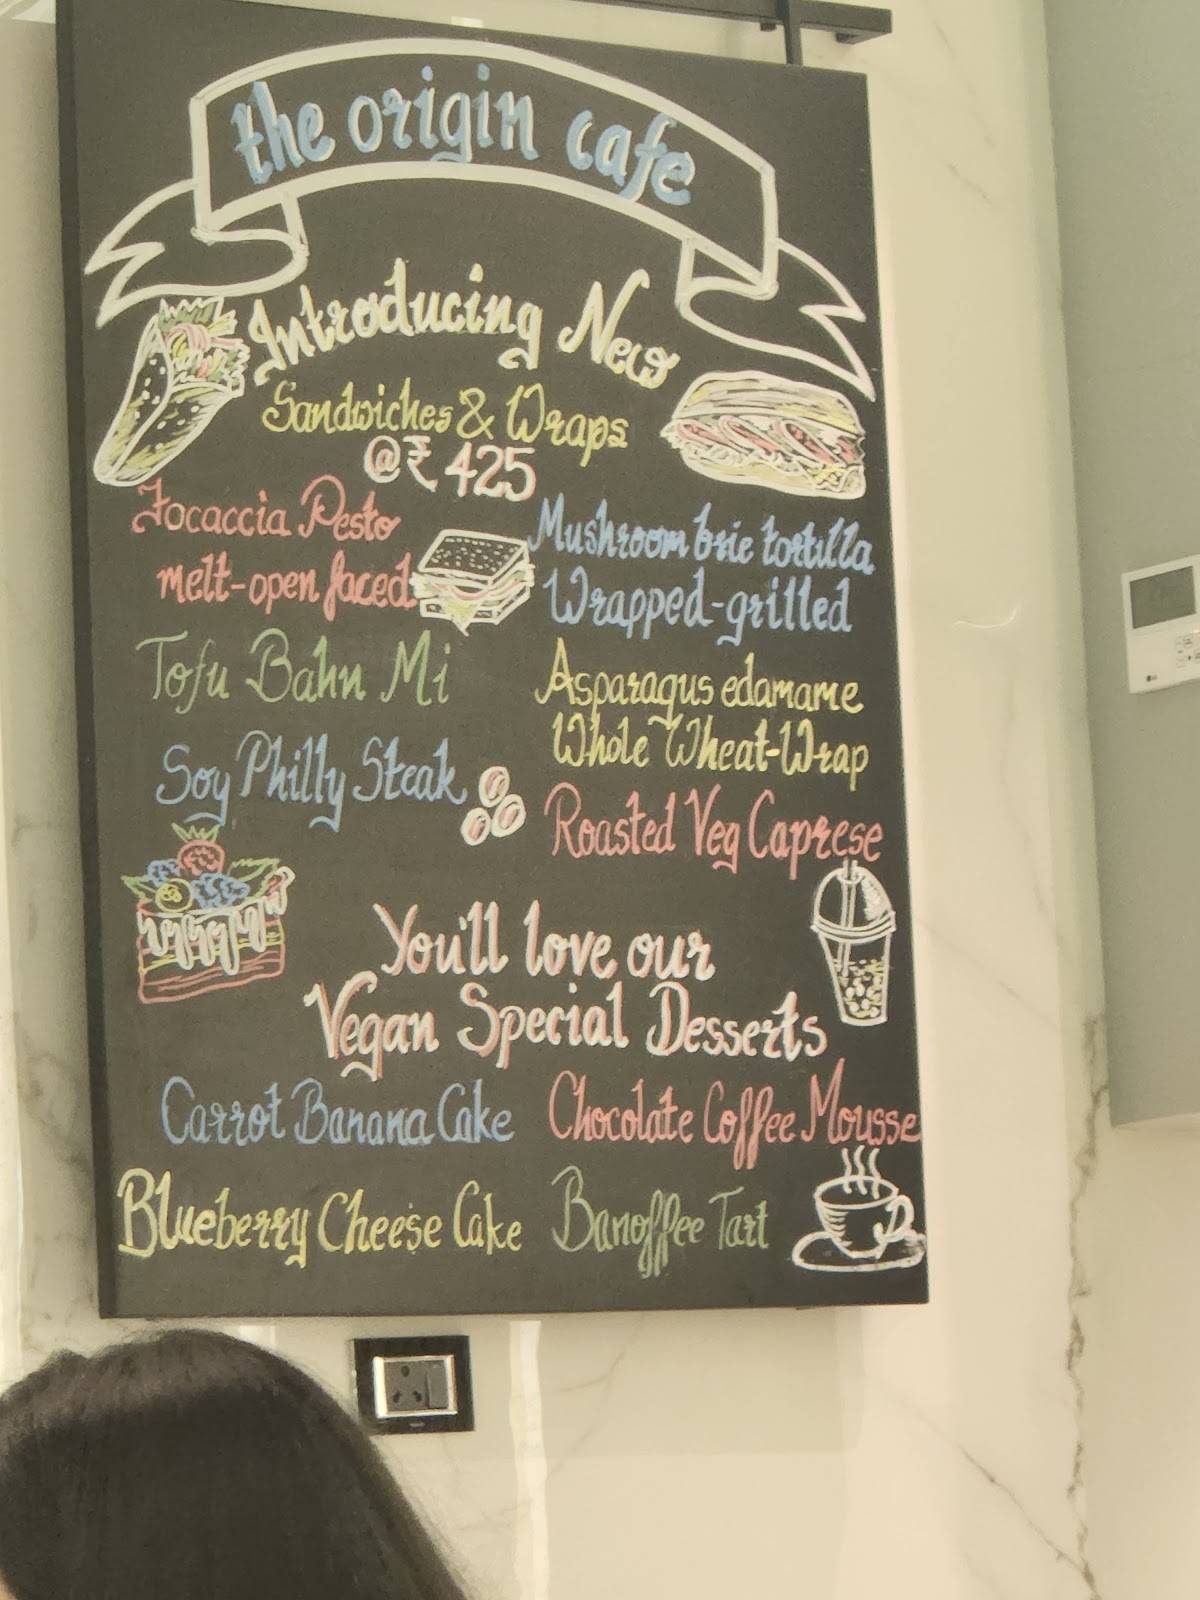 the origin cafe
Introducing New
Sandwiches & Wraps
@ ₹ 425
Focaccia Pesto
melt-open faced
Tofu Bahn Mi
Soy Philly Steak
Mushroom brie tortilla
Wrapped-grilled
Asparagus edamame
Whole Wheat-Wrap
Roasted Veg Caprese
You'll love our
Vegan Special Desserts
Carrot Banana Cake
Chocolate Coffee Mousse
Blueberry Cheese Cake
Banoffee Tart
LG